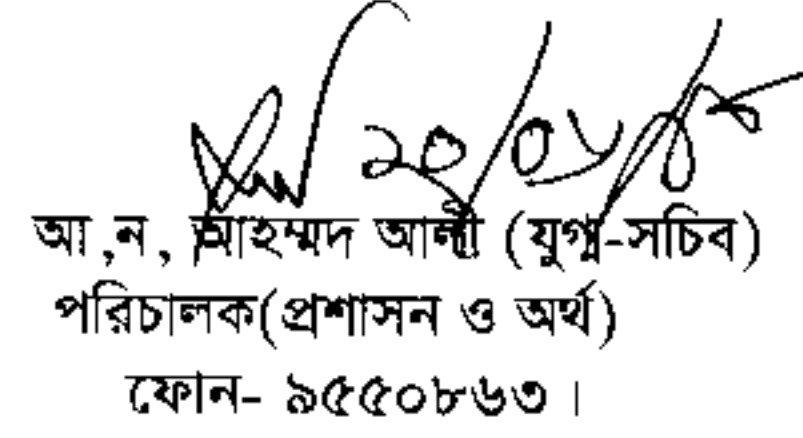 আ ,ন, আহম্মদ আলী (যুগ্ম-সচিব)
পরিচালক(প্রশাসন ও অর্থ)
ফোন- ৯৫৫০৮৬৩।